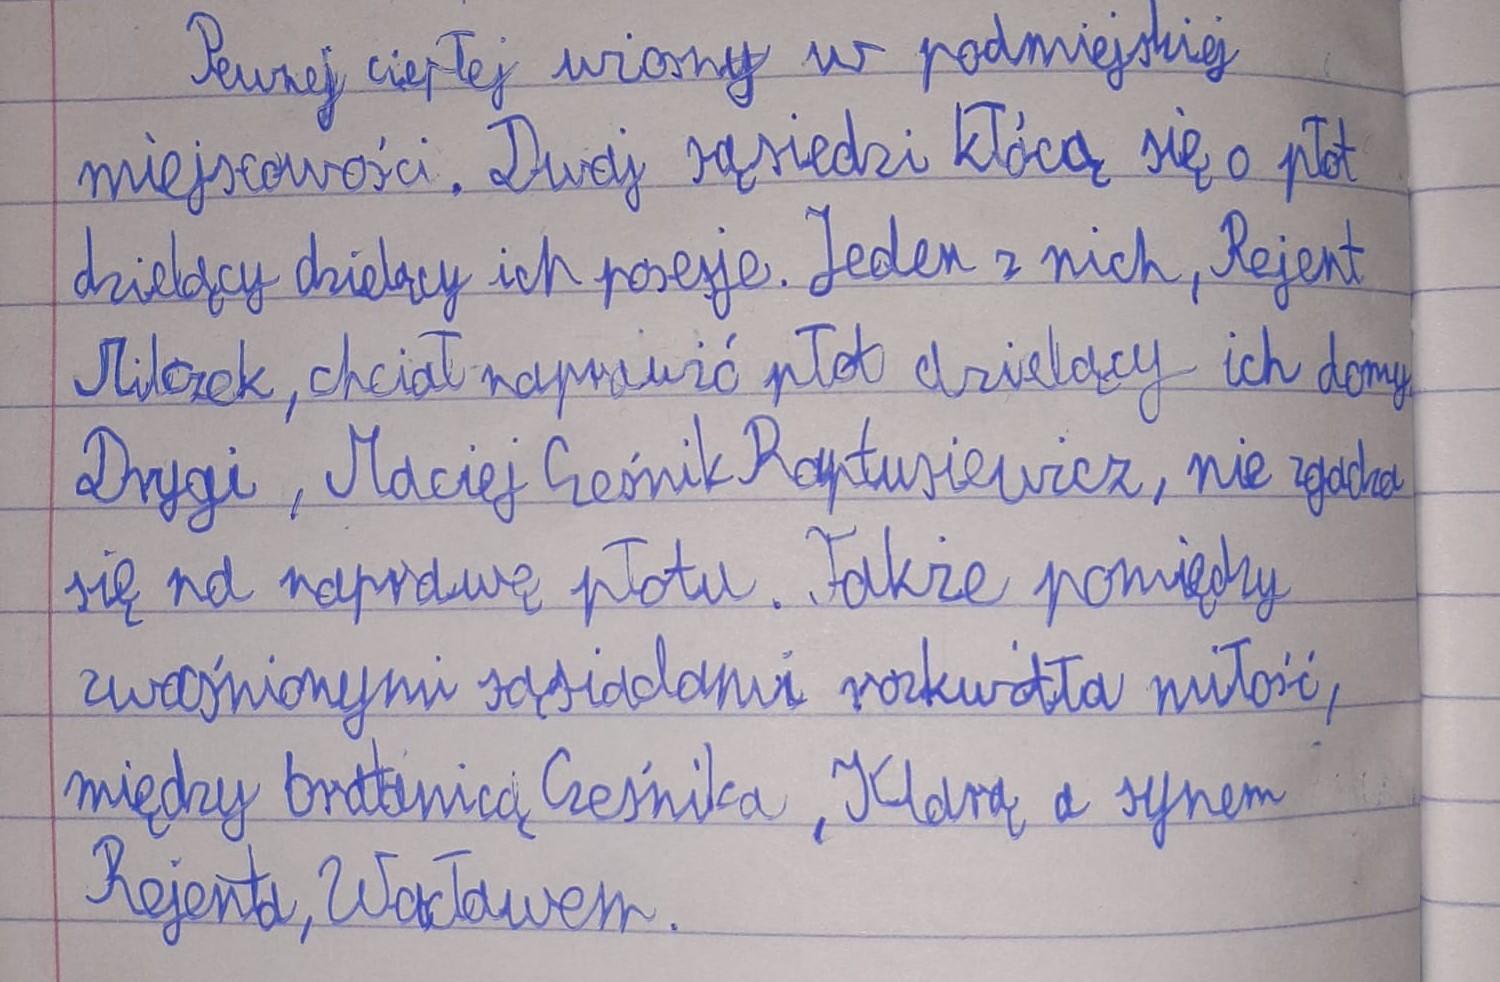 Pewnej ciepłej wiosny w podmiejskiej
miejscowości. Dwaj sąsiedzi kłócą się o płot
dzielący dzielący ich posesje. Jeden z nich, Rejent
Milczek, chciał naprawić płot dzielący ich domy.
Drygi, Maciej Cześnik Raptusiewicz, nie zgadza
się na naprawę płotu. Także pomiędzy
zwaśnionymi sąsiadami rozkwitła miłość,
między bratanicą Cześnika, Klarą a synem
Rejenta, Wacławem.